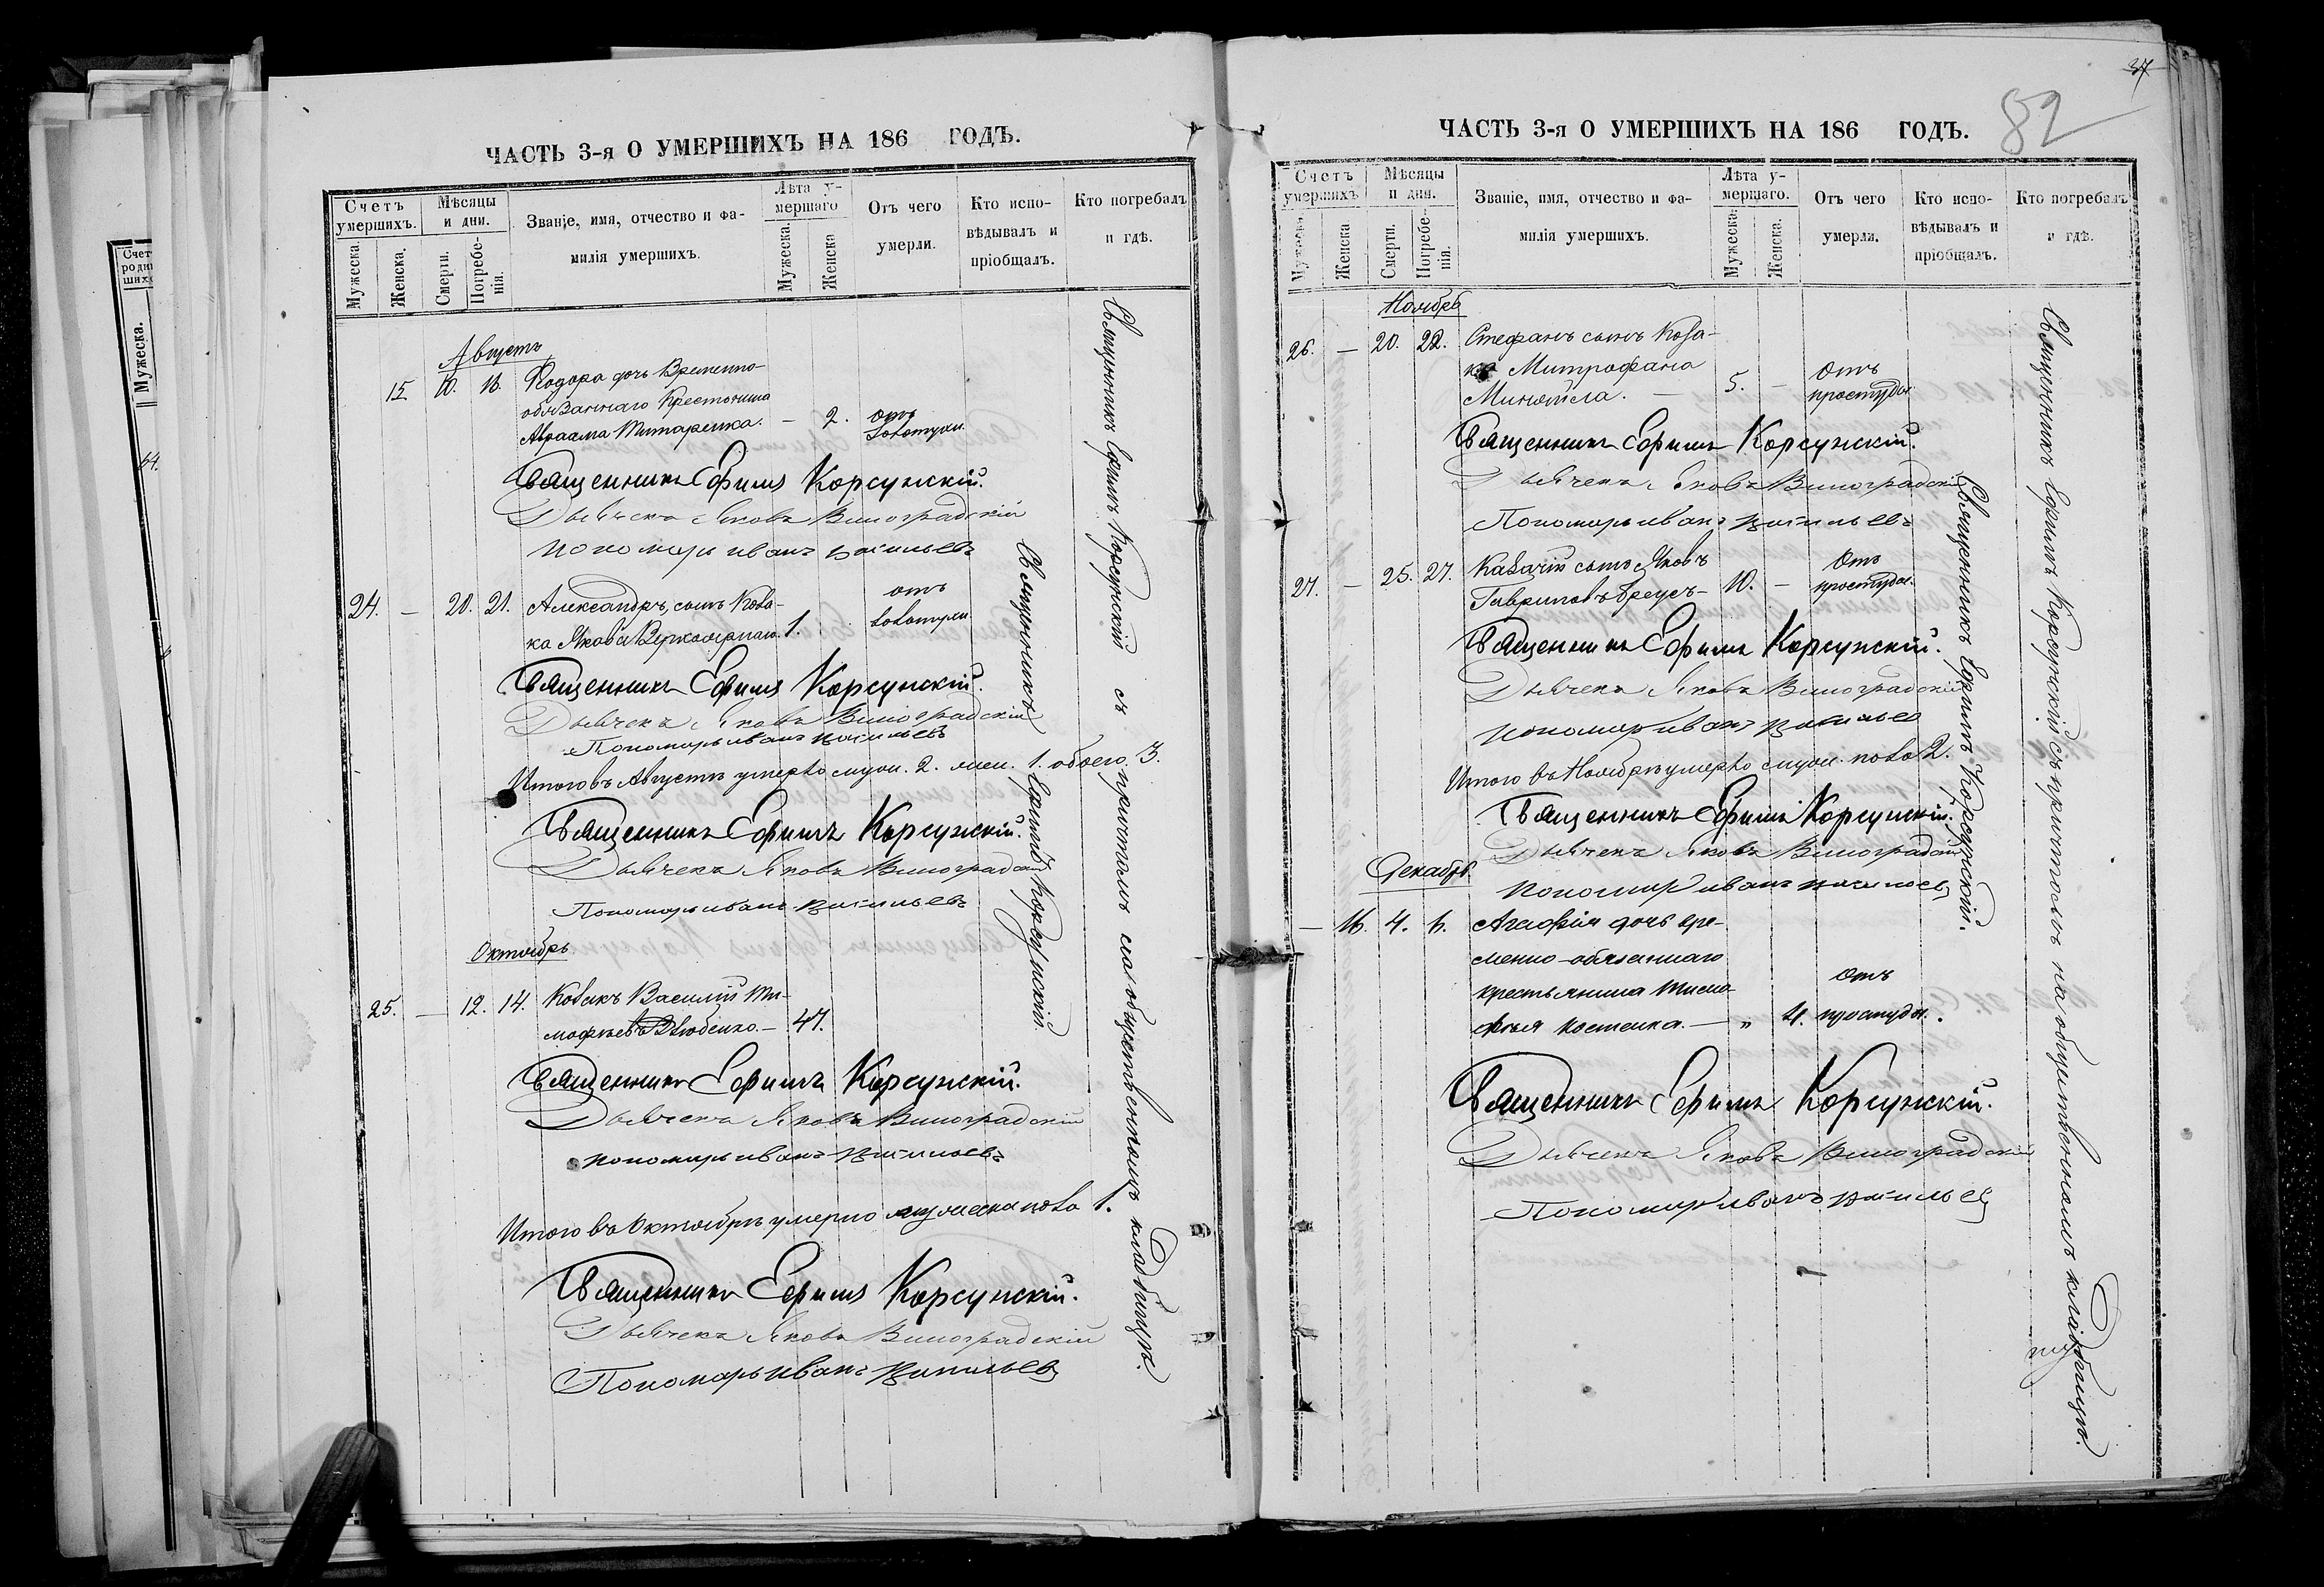 ЧАСТЬ 3-я О УМЕРШИХЪ НА 186 ГОДЪ.
Счетъ умершихъ.
Мѣсяцы и дни.
Званіе, имя, отчество и фа-
милія умершихъ.
Лѣта у-
мершаго
Отъ чего
умерли.
Кто испо-
вѣдывалъ и
пріобщалъ.
Кто погребалъ
и гдѣ.
Мужеска.
Женска.
Смерти.
Погребе-
нія.
Мужеска.
Женска
Августъ
15 дочь Временно-
обязаннаго Крестьянина
Авраама Титаренка. — 2. отъ
золотухи.
Священникъ Ефимъ Корсунскій.
Дьячекъ Яковъ Виноградскій
Пономарь Иванъ
24. — 20. 21. Александръ, сынъ Коза-
ка Якова 1. отъ
золотухи
Священникъ Ефимъ Корсунскій.
Дьячекъ Яковъ Виноградскій
Пономарь Иванъ
Итого въ Августѣ умерло муж. 2. жен. 1. обоего 3.
Священникъ Ефимъ Корсунскій.
Дьячекъ Яковъ Виноградскій
Пономарь Иванъ
Октябрь
25. — 12. 14. Козакъ Василій Ти-
мофѣевъ — 47.
Священникъ Ефимъ Корсунскій.
Дьячекъ Яковъ Виноградскій
Пономарь Иванъ
Итого въ Октябрѣ умерло мужеска пола 1.
Священникъ Ефимъ Корсунскій.
Дьячекъ Яковъ Виноградскій
Пономарь Иванъ
Священникъ Ефимъ Корсунскій
Священникъ Ефимъ Корсунскій съ причтомъ на общественномъ кладбищѣ.
Счет
родив
ших
Мужеска.
64.
37
82
ЧАСТЬ 3-я О УМЕРШИХЪ НА 186 ГОДЪ.
Счетъ
умершихъ
Мѣсяцы
и дни.
Званіе, имя, отчество и фа-
милія умершихъ.
Лѣта у-
мершаго.
Отъ чего
умерли.
Кто испо-
вѣдывалъ и
пріобщалъ.
Кто погребалъ
и гдѣ.
Мужеска.
Женска
Смерти.
Погребе-
нія.
Мужеска.
Женска.
Ноябрь
26. — 20. 22. Стефанъ сынъ Коза-
ка Митрофана
5. — отъ
простуды
Священникъ Ефимъ Корсунскій.
Дьячекъ Яковъ Виноградскій
Пономарь Иванъ
27. — 25. 27. Казачій сынъ Яковъ
Гавриловъ 10. — отъ
простуды.
Священникъ Ефимъ Корсунскій.
Дьячекъ Яковъ Виноградскій
Пономарь Иванъ
Итого въ Ноябрѣ умерло муж. пола 2.
Священникъ Ефимъ Корсунскій.
Дьячекъ Яковъ Виноградскій
Пономарь Иванъ
Декабрь
— 16. 4. 6. Агафія дочь вре-
менно-обязаннаго
крестьянина Тимо-
фея Костенка. — „ 4. отъ
простуды.
Священникъ Ефимъ Корсунскій.
Дьячекъ Яковъ Виноградскій
Пономарь Иванъ
Священникъ Ефимъ Корсунскій.
Священникъ Ефимъ Корсунскій съ причтомъ на общественномъ кладбищѣ.